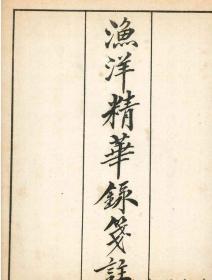 漁洋精華録箋註